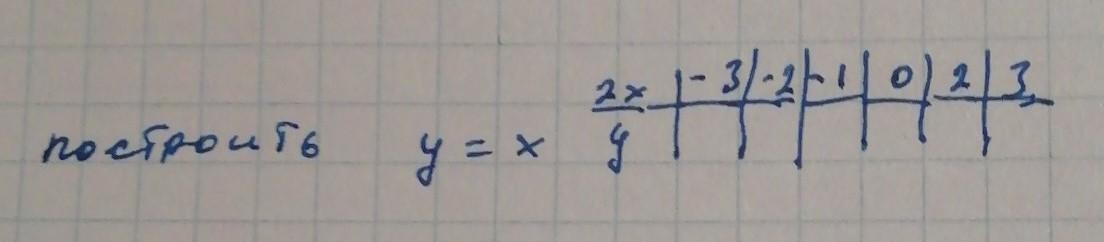 2x -3 -2 -1 0 2 3
построить y = x y